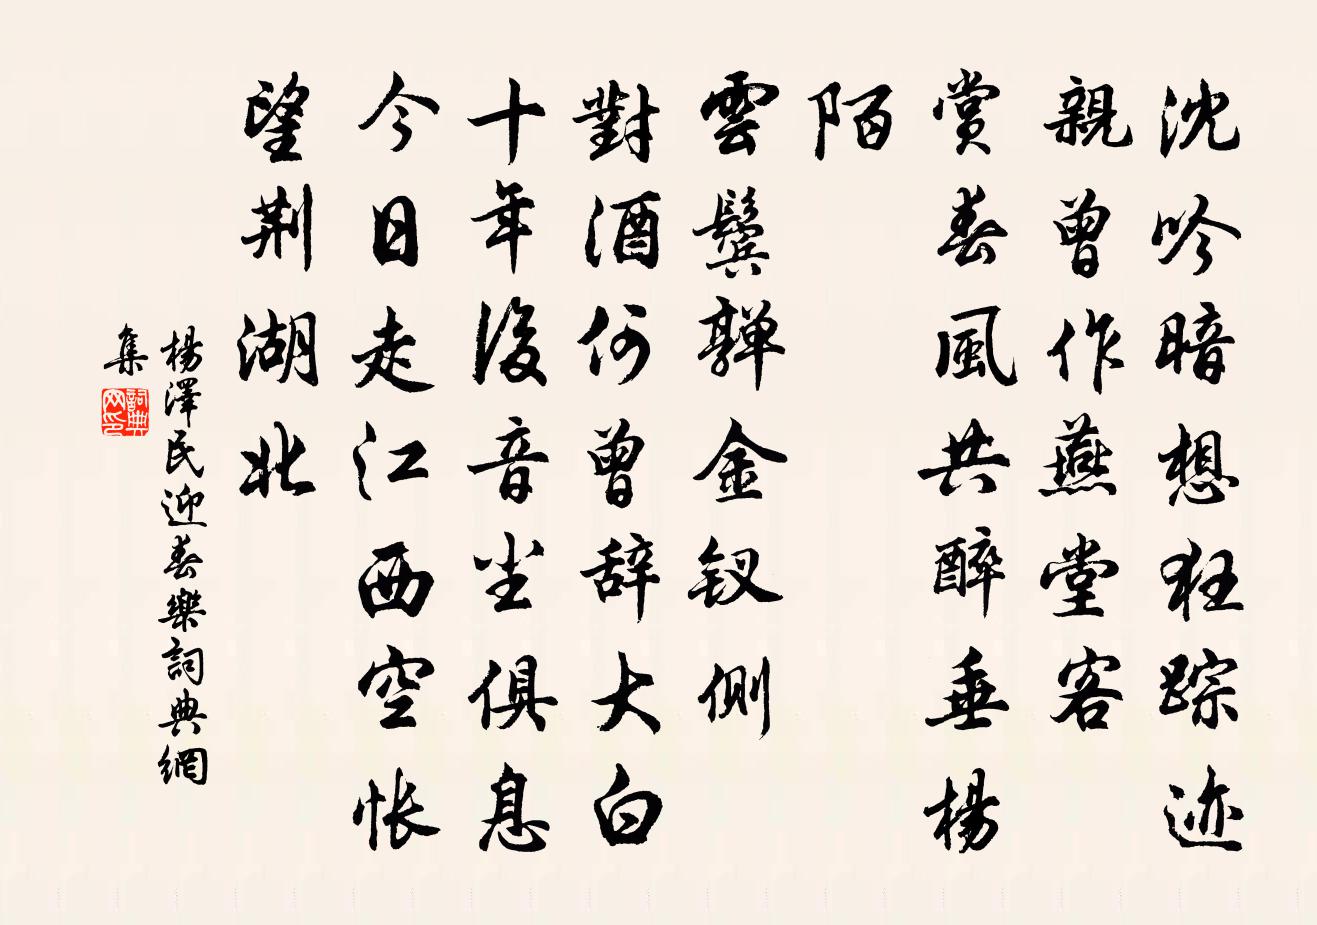 沈吟暗想狂踪迹
親曾作燕堂客
賞春風共醉垂楊
陌
雲鬢嚲金钗側
對酒何曾辞大白
十年後音尘俱息
今日走江西空怅
望荆湖北
楊澤民迎春樂詞典網
集
詞典
网印